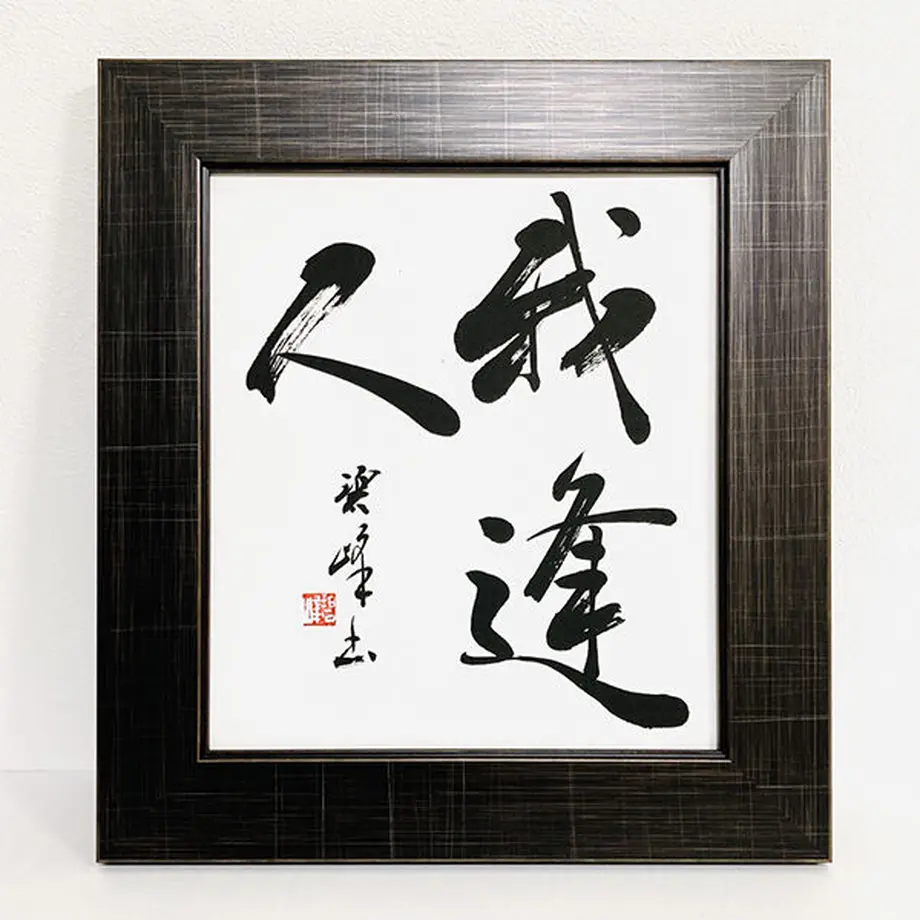 我逢
人
峰書